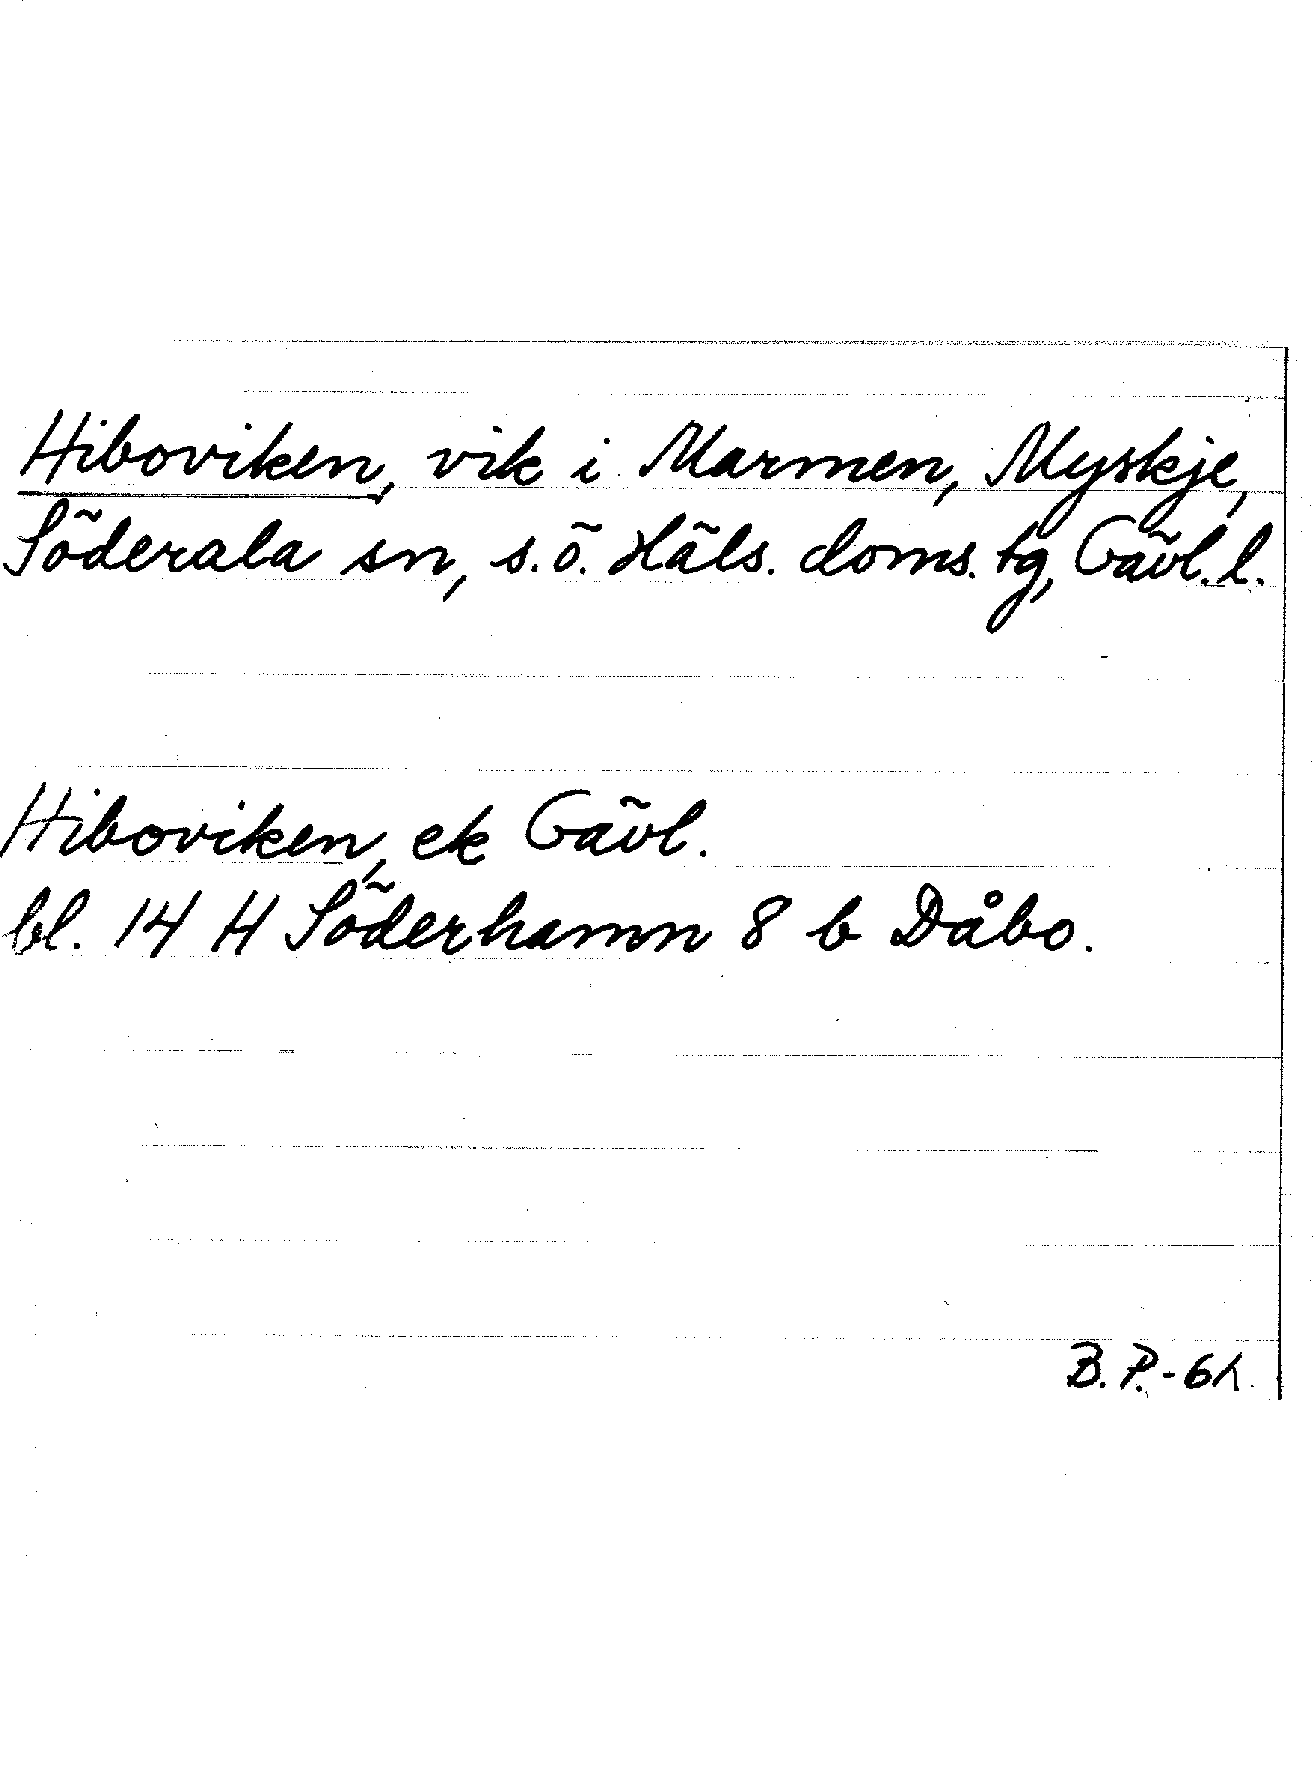 Hiboviken, vik i Marmen, Myskje,
Söderala sn, s.ö. Häls. doms. tg, Gävl. l.
Hiboviken, ek Gävl.
bl. 14 H Söderhamn 8 b Dåbo.
B. P.